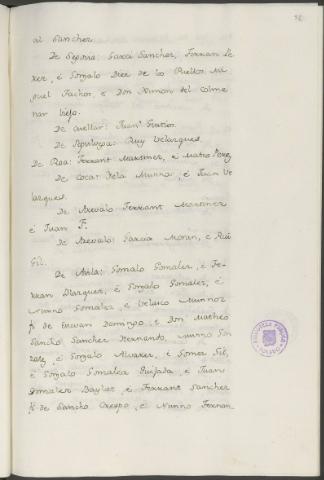 al Sanchez.
De Segovia: Garci Sanchez, Ferran Pe
rez, é Gonzalo Diez de los Puellos, Mi
guel Pachos, e Don Ximon del Colme
nar viejo.
De Cuellar: Juan
De Sepulvega: Ruy Velazques.
De Roa: Ferrant Martinez, é Mateo Perez,
De Coca: Vela Munno, é Juan Ve
lazques.
De Arevalo Ferrant Martinez
é Juan F.
De Arevalo: Garcia Monin, e Rui
Gil.
De Avila: Gonzalo Gonzalez, é Fe-
rran Blazquez, é Gonzalo Gonzalez, é
Nunno Gonzalez, e Velasco Munnoz
fi. de Estevan Domingo, e Don Matheo
Sancho Sanchez Hernando, Nunno Gon
zalez, é Gonzalo Alvarez, é Gomez Gil,
é Gonzalo Gonzalez Quijada, é Juan
Gonzalez Baylez, é Ferrant Sanchez
fi. de Sancho Crespo, é Nunno Ferran